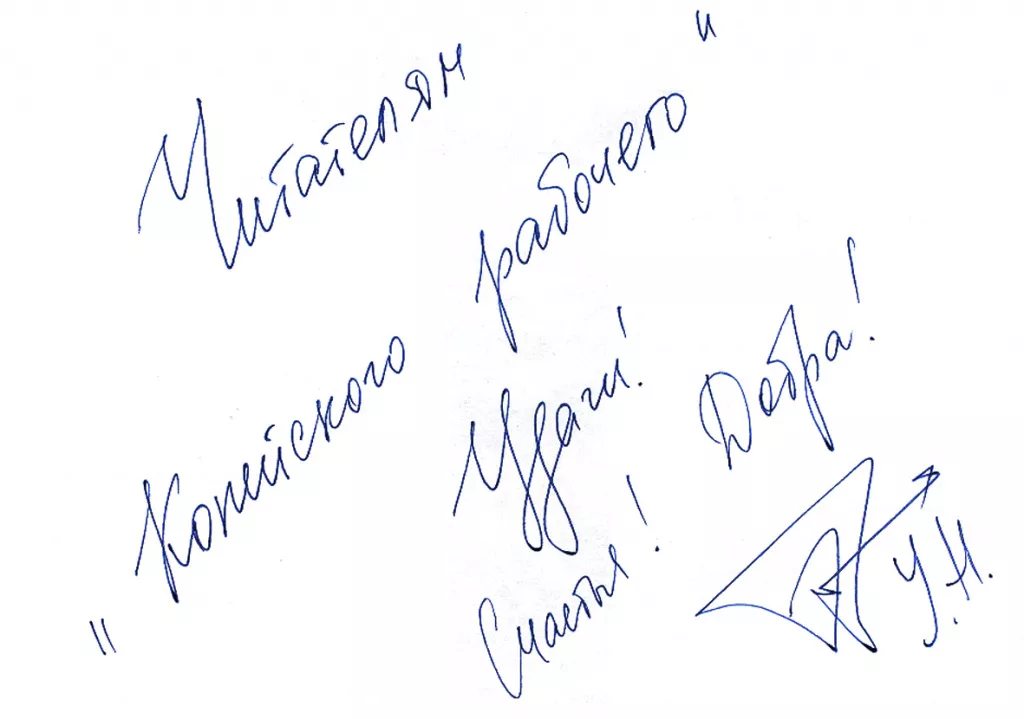 Читателям
"Копейского рабочего"
Удачи! Добра!
Счастья!
У.Н.